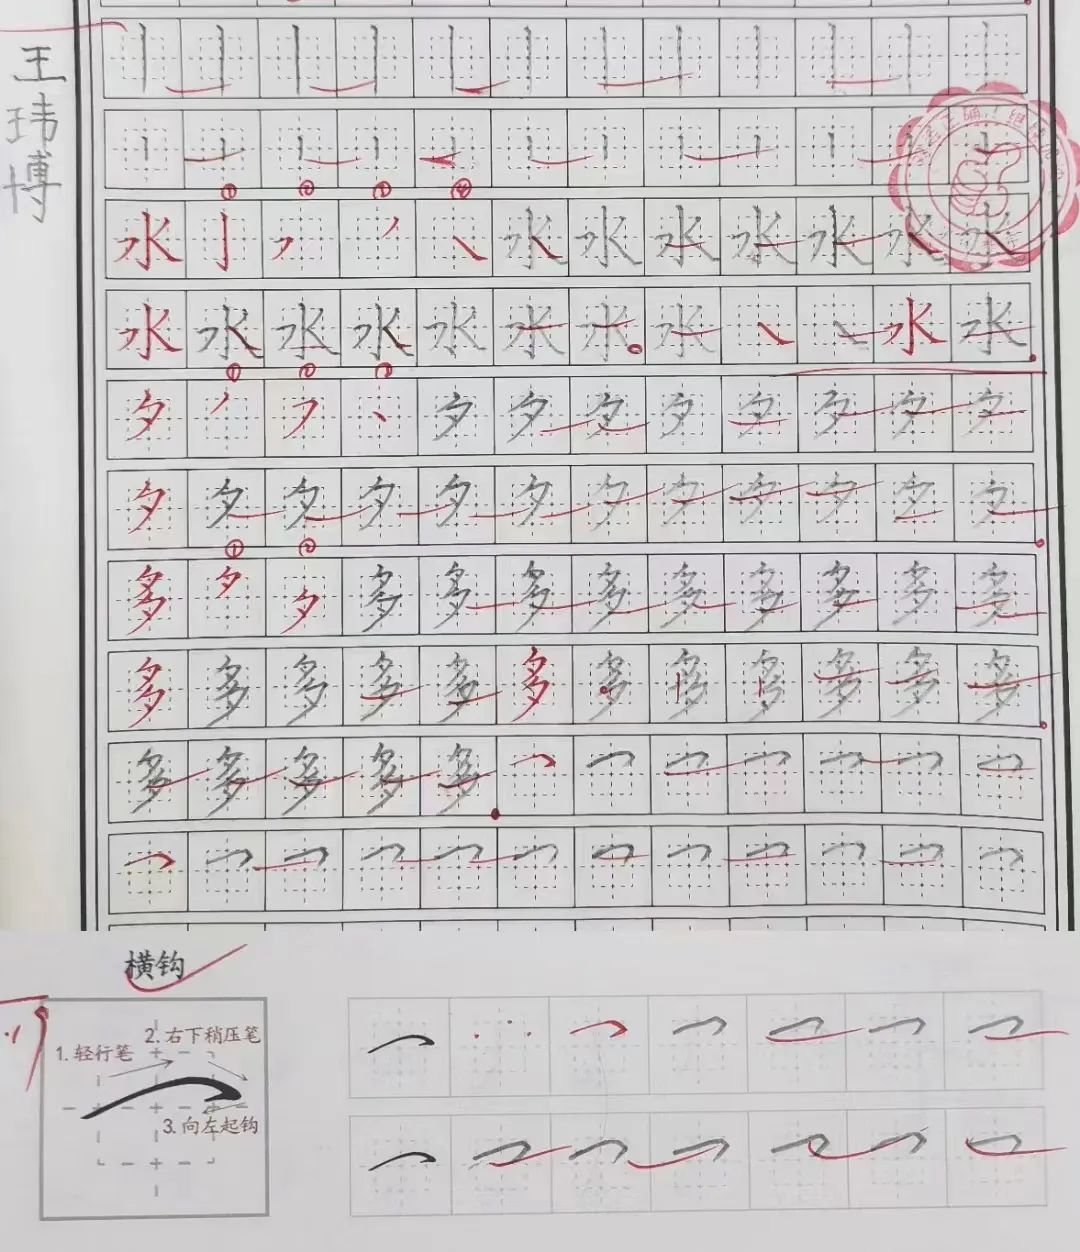 王玮博
①②③④
水水水水水水水水
水水水水水水水水水水
①②③
夕夕夕夕夕夕夕夕夕
夕夕夕夕夕夕夕夕夕夕夕夕
①②
多夕夕多多多多多多多多多
多多多多多多多多多多多多
多多多多多
横钩
1.轻行笔
2.右下稍压笔
3.向左起钩